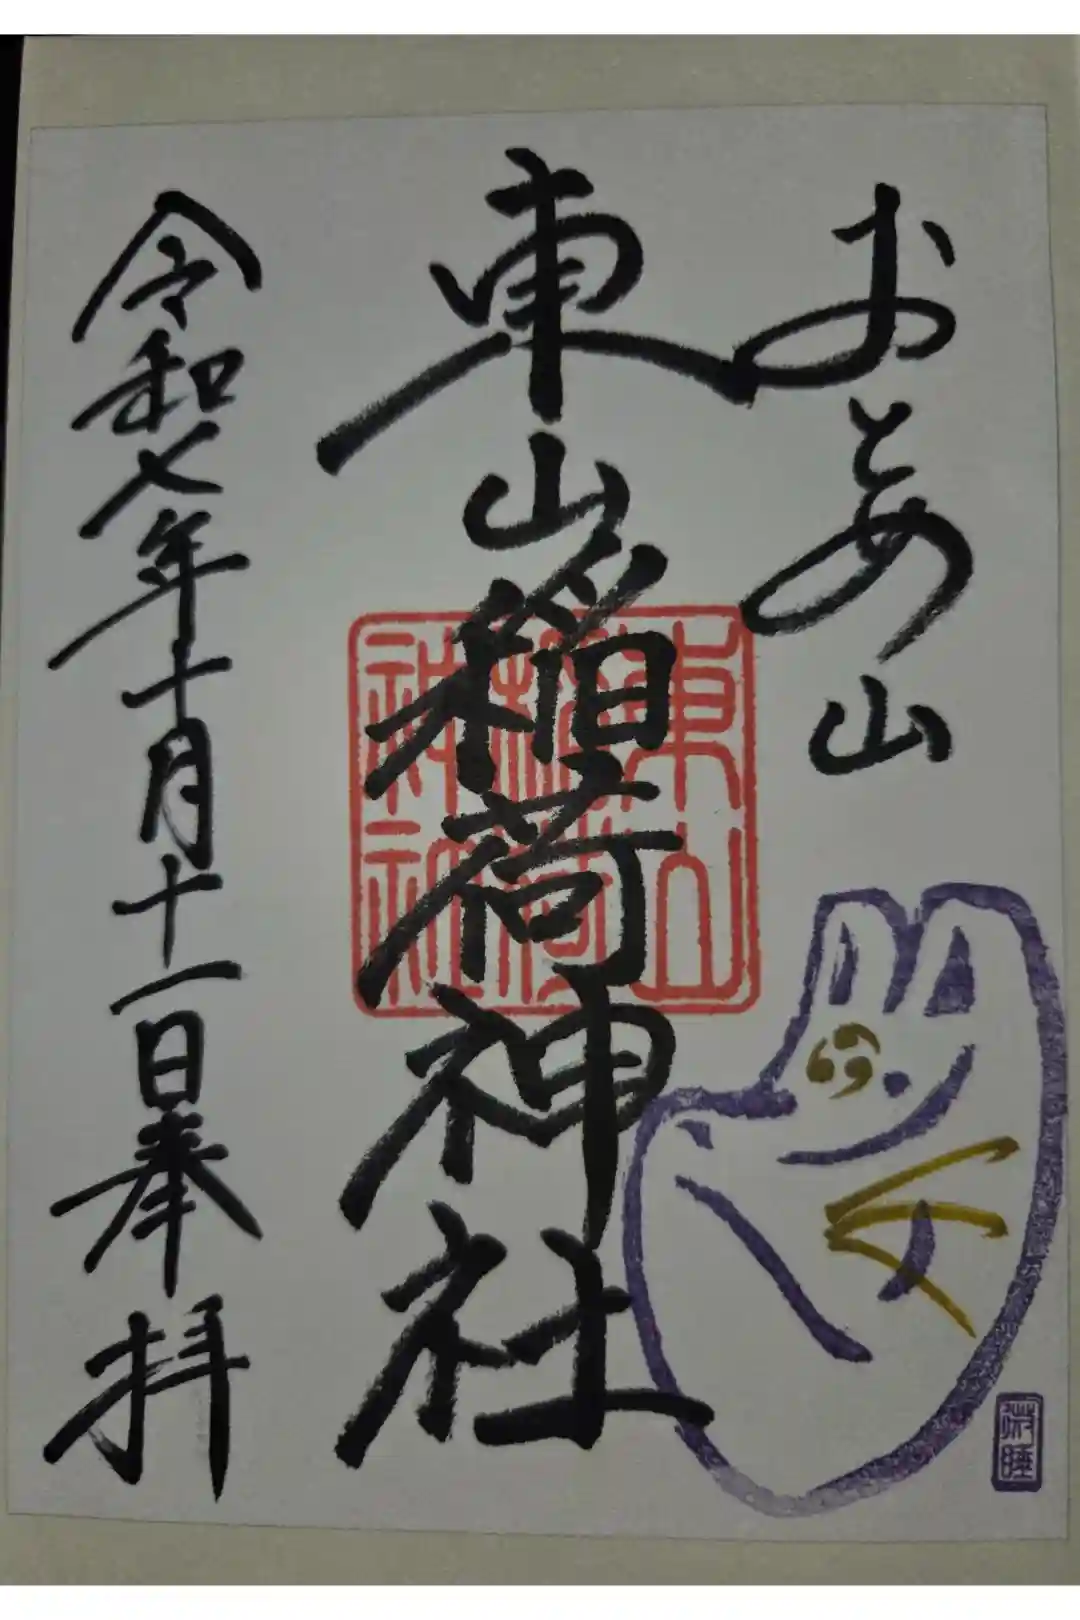 おとめ山
東山稲荷神社
令和七年十月十一日奉拝
東山
稲荷
神社